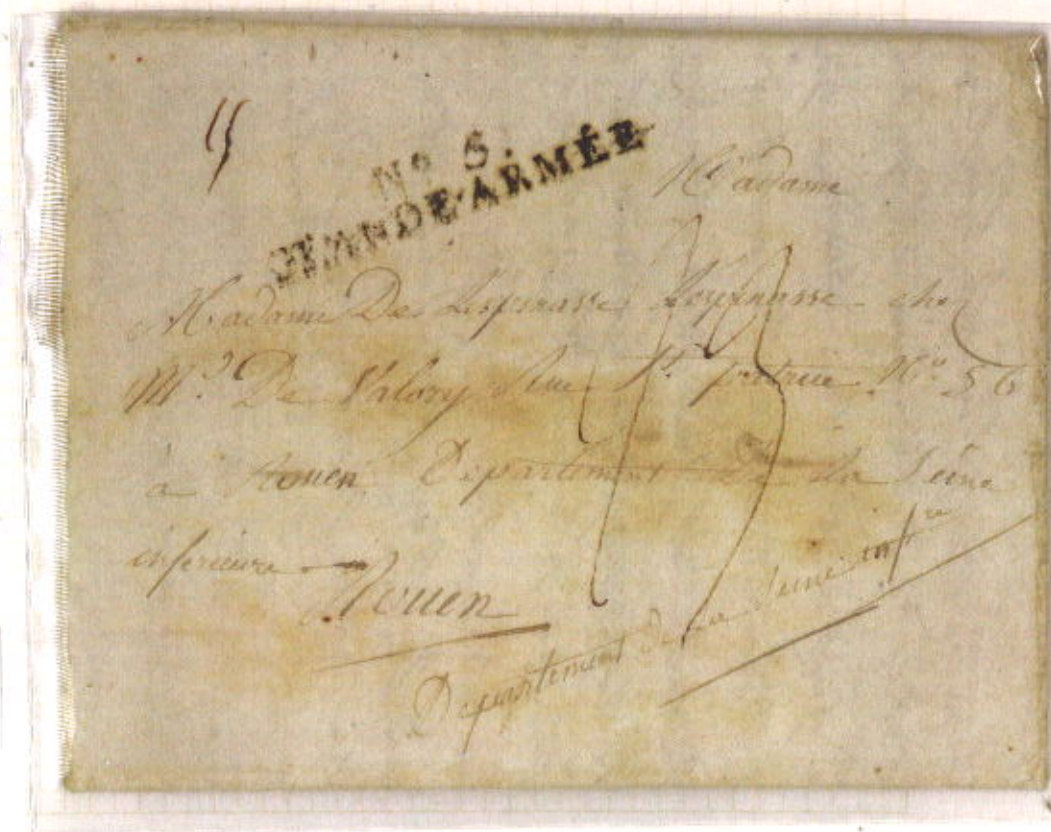 N° 5.
GRANDE-ARMÉE
Madame
Madame De Lespinasse Lespinasse chez
Mr. De Valory Rue St. patrice N° 56
à Rouen Departement De la Seine
inferieure
Rouen
Departement de la Seine infre